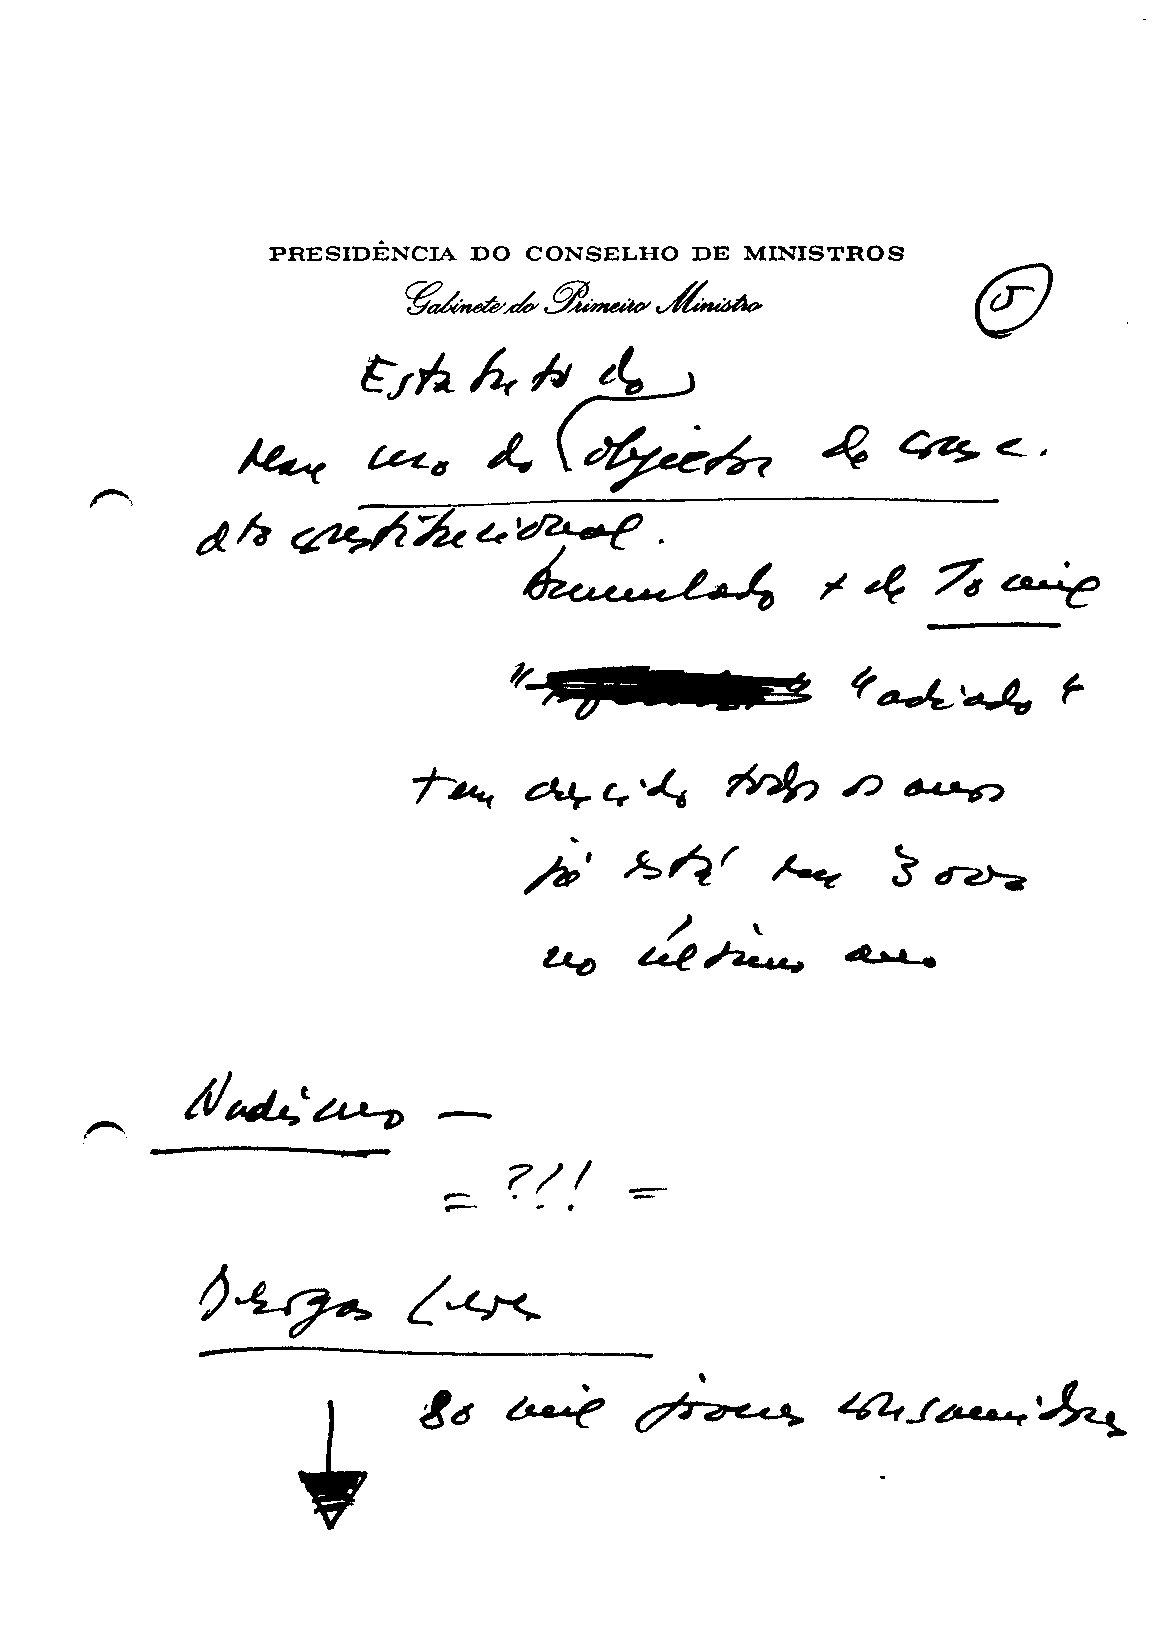 PRESIDÊNCIA DO CONSELHO DE MINISTROS
Gabinete do Primeiro Ministro
5
Estatuto do
uso do objector de consc.
dto constitucional.
Acumulado + de 70 mil
"adiado"
tem crescido todos os anos
já está em 3000
no último ano
Nudismo —
= ?!! =
Drogas Leves
80 mil jovens consumidores